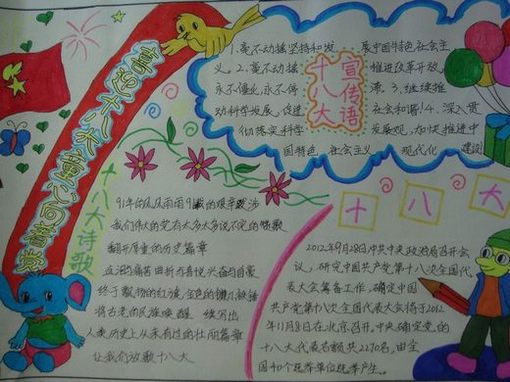 喜迎十八大童心向着党
1、毫不动摇坚持和发展中国特色社会主
义。2、毫不动摇推进改革开放，
永不僵化，永不停滞。3、继续推
动科学发展，促进社会和谐!4、深入贯
彻落实科学发展观，加快推进中
国特色社会主义现代化建设
十八大
宣传语
十八大诗歌
91年的风风雨雨91载的艰辛跋涉
我们伟大的党有太多太多说不完的赞歌
翻开厚重的历史篇章
终于飘扬的红旗，金色的镰刀锤
人类历史上从未有过的壮丽篇章
让我们放歌十八大
十八大
2012年9月28日中共中央政治局召开会
议，研究中国共产党第十八次全国代
表大会筹备工作，确定中国
共产党第十八次全国代表大会将于2012
年11月8日在北京召开。中央确定党的
十八大代表名额共2270名，由全
国40个选举单位选举产生。